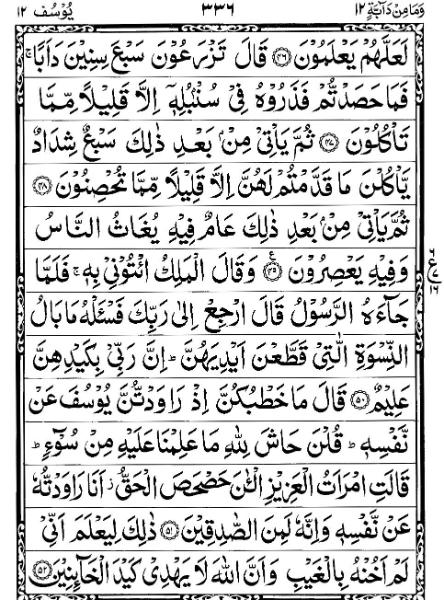 وَمَا مِنْ دَآبَّةٍ ١٢ ٣٣٦ يُوْسُف ١٢
لَعَلَّهُمْ يَعْلَمُوْنَ ﴿٤٦﴾ قَالَ تَزْرَعُوْنَ سَبْعَ سِنِيْنَ دَاَبًا ۚ
فَمَا حَصَدْتُّمْ فَذَرُوْهُ فِىْ سُنْۢبُلِهٖۤ اِلَّا قَلِيْلًا مِّمَّا
تَاْكُلُوْنَ ﴿٤٧﴾ ثُمَّ يَاْتِىْ مِنْۢ بَعْدِ ذٰلِكَ سَبْعٌ شِدَادٌ
يَّاْكُلْنَ مَا قَدَّمْتُمْ لَهُنَّ اِلَّا قَلِيْلًا مِّمَّا تُحْصِنُوْنَ ﴿٤٨﴾
ثُمَّ يَاْتِىْ مِنْۢ بَعْدِ ذٰلِكَ عَامٌ فِيْهِ يُغَاثُ النَّاسُ
وَفِيْهِ يَعْصِرُوْنَ ﴿٤٩﴾ ع وَقَالَ الْمَلِكُ ائْتُوْنِىْ بِهٖ ۚ فَلَمَّا
٦ ع ١٦
جَآءَهُ الرَّسُوْلُ قَالَ ارْجِعْ اِلٰى رَبِّكَ فَسْئَلْهُ مَا بَالُ
النِّسْوَةِ الّٰتِىْ قَطَّعْنَ اَيْدِيَهُنَّ ؕ اِنَّ رَبِّىْ بِكَيْدِهِنَّ
عَلِيْمٌ ﴿٥٠﴾ قَالَ مَا خَطْبُكُنَّ اِذْ رَاوَدْتُّنَّ يُوْسُفَ عَنْ
نَّفْسِهٖ ؕ قُلْنَ حَاشَ لِلّٰهِ مَا عَلِمْنَا عَلَيْهِ مِنْ سُوْٓءٍ ؕ
قَالَتِ امْرَاَتُ الْعَزِيْزِ الْـٰٔنَ حَصْحَصَ الْحَقُّ ؗ اَنَا رَاوَدْتُّهٗ
عَنْ نَّفْسِهٖ وَاِنَّهٗ لَمِنَ الصّٰدِقِيْنَ ﴿٥١﴾ ذٰلِكَ لِيَعْلَمَ اَنِّىْ
لَمْ اَخُنْهُ بِالْغَيْبِ وَاَنَّ اللّٰهَ لَا يَهْدِىْ كَيْدَ الْخَآئِنِيْنَ ﴿٥٢﴾